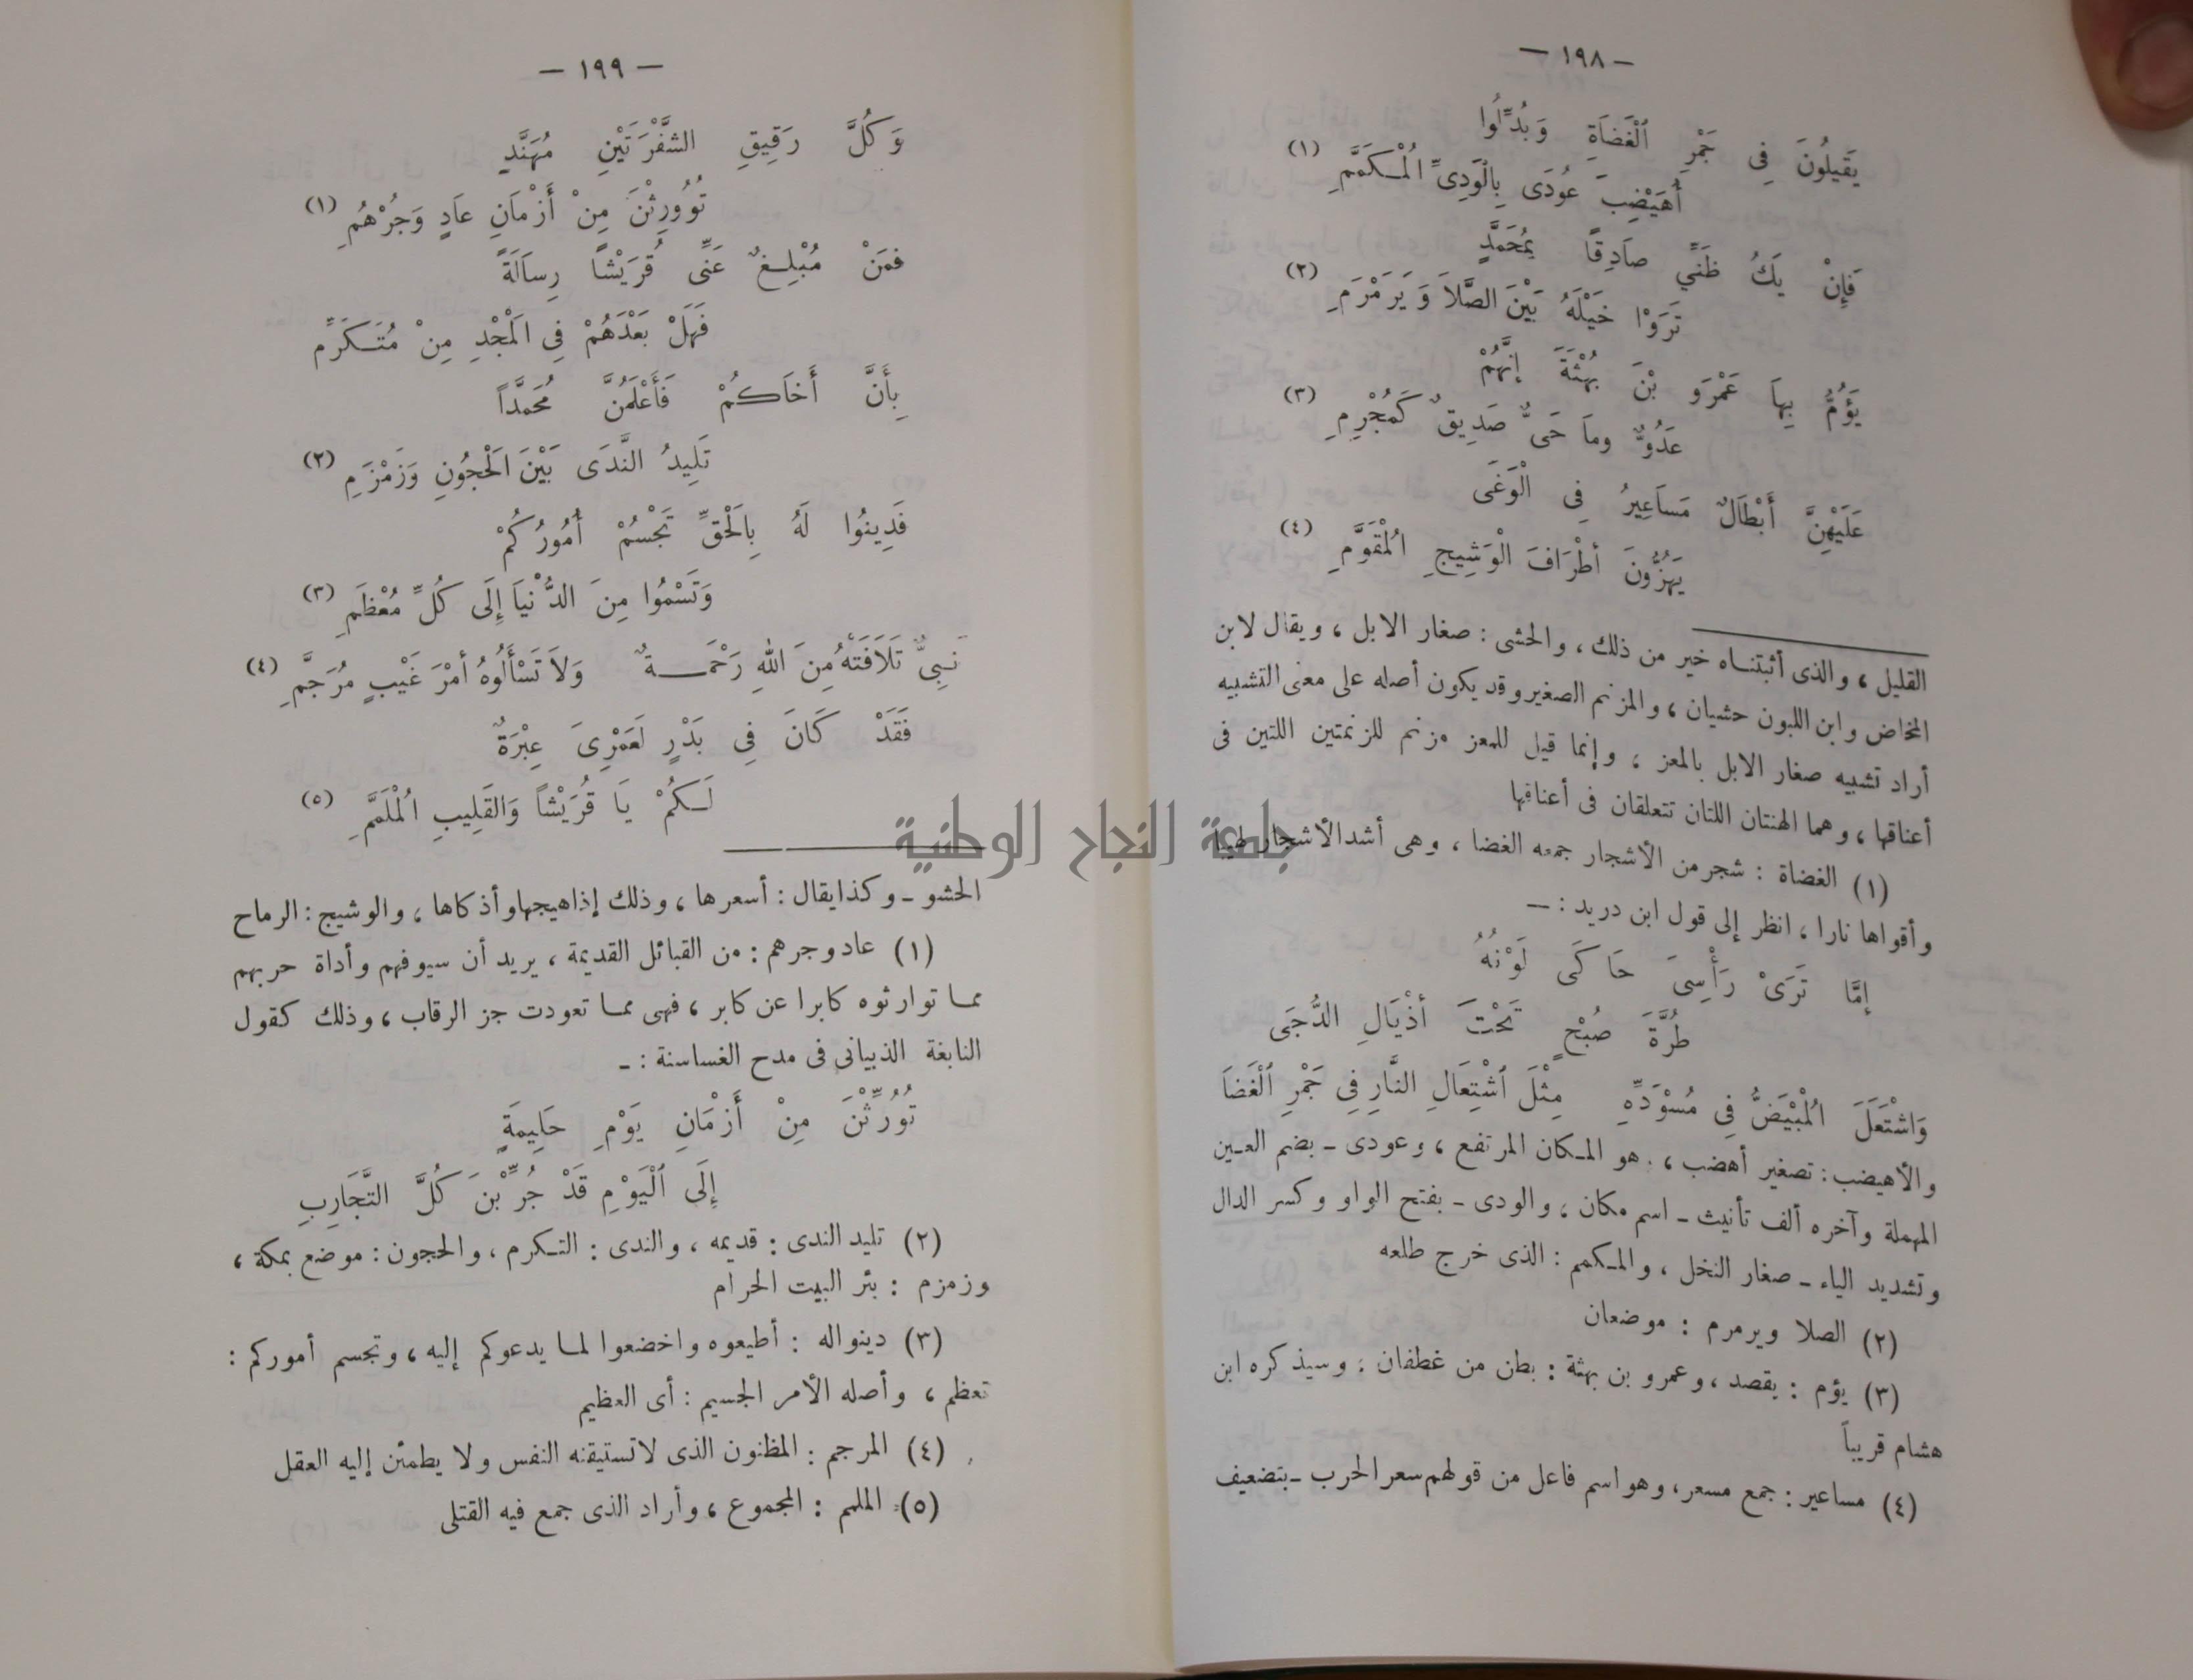 — ١٩٨ —
يَقِيلُونَ فِى جَمْرِ ٱلْغَضَاَةِ وَبُدِّلُوا
أُهَيْضِبَ عُودَى بِالْوَدِىِّ الْمُـكَمَّمِ (١)
فَإِنْ يَكُ ظَنِّي صاَدِقًا بِمُحَمَّدٍ
تَرَوْا خَيْلَهُ بَيْنَ الصَّلاَ وَيَرَمْرَمِ (٢)
يَؤُمُّ بِهاَ عَمْرَو بْنَ بُهْثَةَ إنَّهُمْ
عَدُوٌّ وماَ حَىٌّ صَدِيقٌ كَمُجْرِمِ (٣)
عَلَيْهِنَّ أَبْطَالٌ مَساَعِيرُ فِى الْوَغَى
يَهُزُّونَ أطْرَافَ الْوَشِيجِ الْمُقَوَّمِ (٤)
القليل ، والذى أثبتنـاه خير من ذلك ، والحشى : صغار الابل ، ويقال لابن
المخاض وابن اللبون حشيان ، والمزنم الصغير وقد يكون أصله على معنى التشبيه
أراد تشبيه صغار الابل بالمعز ، وإنما قيل للمعز مزنم للزنمتين اللتين فى
أعناقها ، وهما الهنتان اللتان تتعلقان فى أعناقها
(١) الغضاة : شجر من الأشجار جمعه الغضا ، وهى أشد الأشجار لهيبا
وأقواها نارا ، انظر إلى قول ابن دريد : —
إمَّا تَرَىْ رَأْسِىَ حَاكَى لَوْنُهُ
طُرَّةَ صُبْحٍ تَحْتَ أذْيَالِ الدُّجَى
وَاشْتَعَلَ الْمُبْيَضُّ فِى مُسْوَدِّهِ مِثْلَ ٱشْتِعَالِ النَّارِ فِى جَمْرِ ٱلْغَضَا
والأهيضب : تصغير أهضب ، هو المـكان المرتفع ، وعودى ـ بضم العـين
المهملة وآخره ألف تأنيث ـ اسم مكان ، والودى ـ بفتح الواو وكسر الدال
وتشديد الياء ـ صغار النخل ، والمـكمم : الذى خرج طلعه
(٢) الصلا ويرمرم : موضعان
(٣) يؤم : يقصد ، وعمرو بن بهثة : بطن من غطفان ، وسيذكره ابن
هشام قريباً
(٤) مساعير : جمع مسعر ، وهو اسم فاعل من قولهم سعر الحرب ـ بتضعيف
— ١٩٩ —
وَكُلَّ رَقِيقِ الشَّفْرَتَيْنِ مُهَنَّدٍ
تُوُورِثْنَ مِنْ أَزْمَانِ عاَدٍ وَجُرْهُمِ (١)
فمَنْ مُبْلِـغٌ عَنِّى قُرَيْشًا رِساَلَةً
فَهَلْ بَعْدَهُمْ فِى الْمَجْدِ مِنْ مُتَـكَرِّم
بِأَنَّ أَخاَكُمْ فَأَعْلَمُنَّ مُحَمَّدًا
تَلِيدُ النَّدَى بَيْنَ الْحَجُونِ وَزَمْزَمِ (٢)
فَدِينُوا لَهُ بِالْحَقِّ تَجْسُمْ أُمُورُكُمْ
وَتَسْمُوا مِنَ الدُّنْيَا إِلَى كُلِّ مُعْظَمِ (٣)
نَبِىٌّ تَلاَفَتْهُ مِنَ اللهِ رَحْمَـــةٌ وَلاَ تَسْأَلُوهُ أمْرَ غَيْبٍ مُرَجَّمِ (٤)
فَقَدْ كَانَ فِى بَدْرٍ لَعَمْرِىَ عِبْرَةٌ
لَـكُمْ يَا قُرَيْشاً وَالقَلِيبِ الْمُلَمَّمِ (٥)
الحشو ـ وكذا يقال : أسعرها ، وذلك إذا هيجها وأذكاها ، والوشيج : الرماح
(١) عاد وجرهم : من القبائل القديمة ، يريد أن سيوفهم وأداة حربهم
ممـا توارثوه كابرا عن كابر ، فهى ممـا تعودت جز الرقاب ، وذلك كقول
النابغة الذبيانى فى مدح الغساسنة : ـ
تُوُرِّثْنَ مِنْ أَزْمَانِ يَوْمِ حَلِيمَةٍ
إِلَى ٱلْيَوْمِ قَدْ جُرِّبْنَ كُلَّ التَّجَارِبِ
(٢) تليد الندى : قديمه ، والندى : التـكرم ، والحجون : موضع بمكة ،
وزمزم : بئر البيت الحرام
(٣) دينوا له : أطيعوه واخضعوا لمـا يدعوكم إليه ، وتجسم أموركم :
تعظم ، وأصله الأمر الجسيم : أى العظيم
(٤) المرجم : المظنون الذى لا تستيقنه النفس ولا يطمئن إليه العقل
(٥) الململم : المجموع ، وأراد الذى جمع فيه القتلى
جامعة النجاح الوطنية